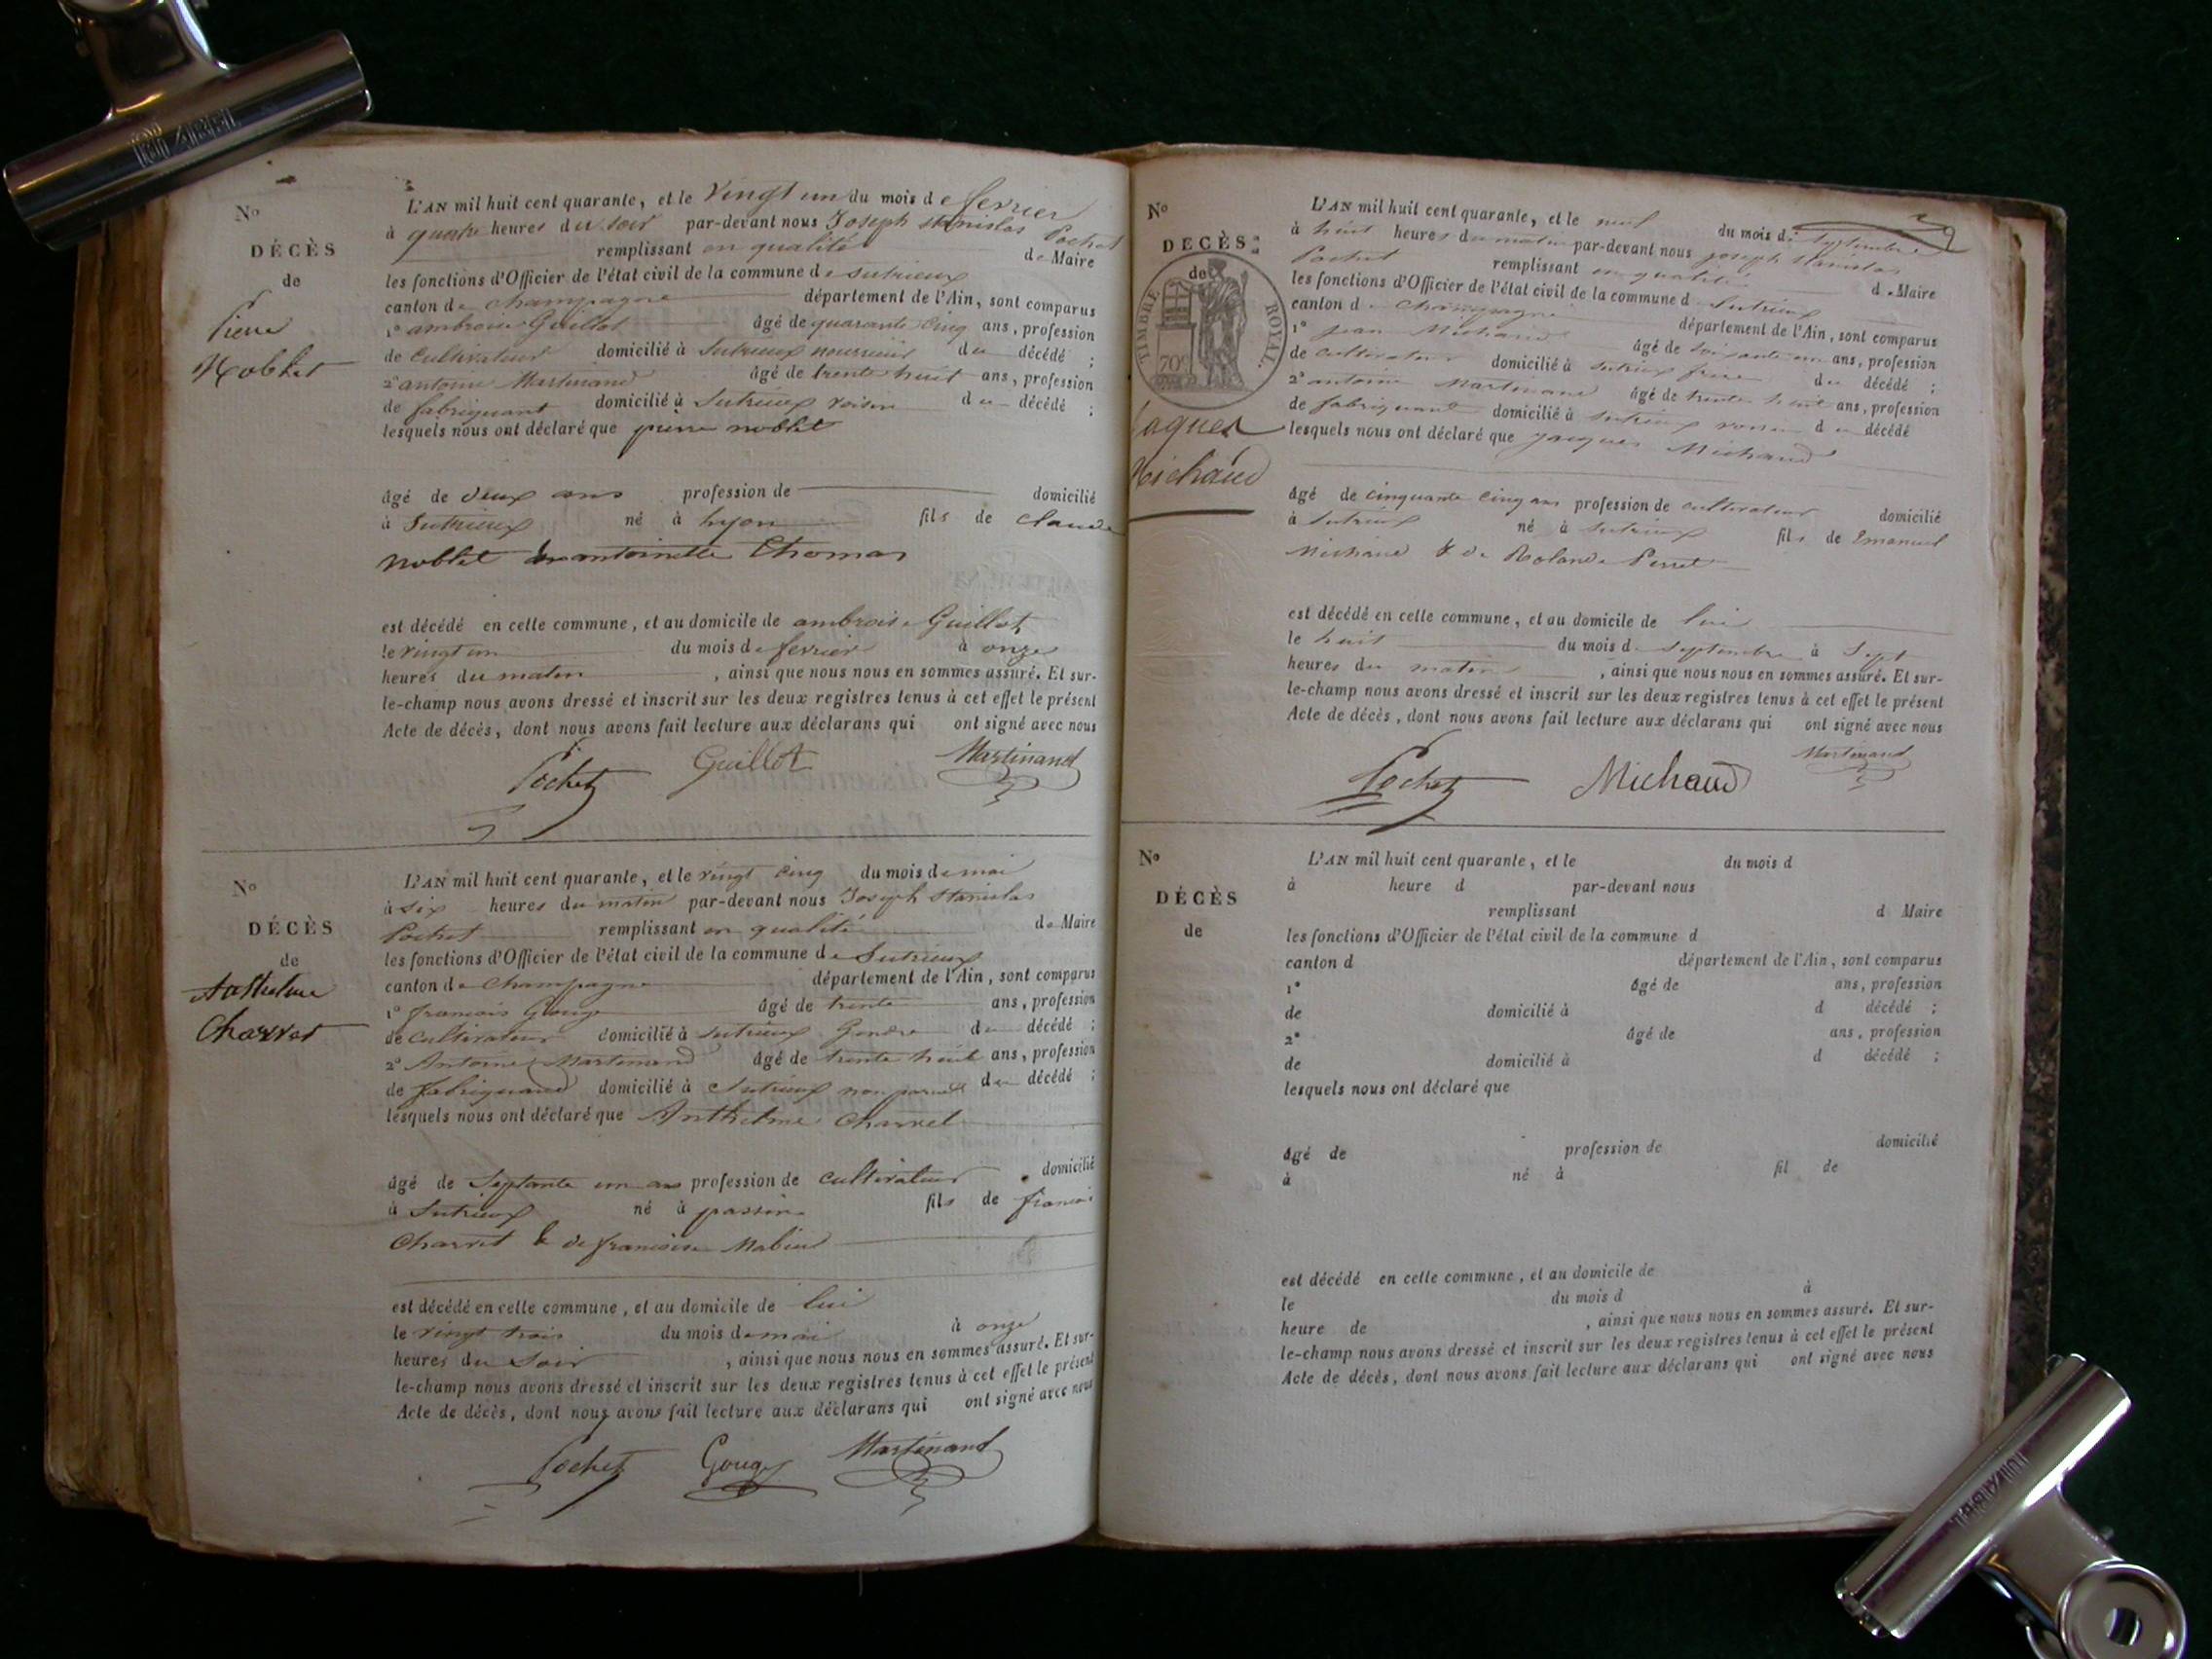 N.º
DÉCÈS
de
Pierre
Noblet
L'AN mil huit cent quarante, et le vingt un du mois de fevrier
à quatre heures du soir par-devant nous Joseph stanislas Pochet
remplissant en qualité de Maire
les fonctions d'Officier de l'état civil de la commune de sutrieux
canton de champagne département de l'Ain, sont comparus
1º ambroise Guillot âgé de quarante cinq ans, profession
de cultivateur domicilié à Sutrieux nourricier du décédé ;
2º antoine Martinand âgé de trente huit ans, profession
de fabriquant domicilié à Sutrieux voisin du décédé ;
lesquels nous ont déclaré que pierre noblet
âgé de deux ans profession de domicilié
à Sutrieux né à lyon fils de claude
noblet de antoinette Thomas
est décédé en cette commune, et au domicile de ambroise Guillot
le vingt un du mois de fevrier à onze
heures du matin , ainsi que nous nous en sommes assuré. Et sur-
le-champ nous avons dressé et inscrit sur les deux registres tenus à cet effet le présent
Acte de décès, dont nous avons fait lecture aux déclarans qui ont signé avec nous
Pochet Guillot Martinand
N.º
DÉCÈS
de
Anthelme
Charvet
L'AN mil huit cent quarante, et le vingt cinq du mois de mai
à six heures du matin par-devant nous Joseph Stanislas
Pochet remplissant en qualité de Maire
les fonctions d'Officier de l'état civil de la commune de Sutrieux
canton de Champagne département de l'Ain, sont comparus
1º francois Gouge âgé de trente ans, profession
de cultivateur domicilié à sutrieux Gendre du décédé ;
2º Antoine Martinand âgé de trente huit ans, profession
de fabriquand domicilié à Sutrieux non parent du décédé ;
lesquels nous ont déclaré que Anthelme Charvet
âgé de Septante un ans profession de cultivateur domicilié
à Sutrieux né à passin fils de francois
Charvet & de francoise Mabiud
est décédé en cette commune, et au domicile de lui
le vingt trois du mois de mai à onze
heures du Soir , ainsi que nous nous en sommes assuré. Et sur-
le-champ nous avons dressé et inscrit sur les deux registres tenus à cet effet le présent
Acte de décès, dont nous avons fait lecture aux déclarans qui ont signé avec nous
Pochet Gouge Martinand
N.º
DÉCÈS
de
TIMBRE ROYAL
70c
Jaques
Michaud
L'AN mil huit cent quarante, et le neuf du mois de septembre
à huit heures du matin par-devant nous joseph stanislas
Pochet remplissant en qualité de Maire
les fonctions d'Officier de l'état civil de la commune de Sutrieux
canton de Champagne département de l'Ain, sont comparus
1º jean Michaud âgé de soixante un ans, profession
de cultivateur domicilié à sutrieux frère du décédé ;
2º antoine Martinand âgé de trente huit ans, profession
de fabriquand domicilié à sutrieux voisin du décédé
lesquels nous ont déclaré que jacques Michaud
âgé de cinquante cinq ans profession de cultivateur domicilié
à Sutrieux né à sutrieux fils de Emanuel
Michaud & de Rolande Perret
est décédé en cette commune, et au domicile de lui
le huit du mois de septembre à Sept
heures du matin , ainsi que nous nous en sommes assuré. Et sur-
le-champ nous avons dressé et inscrit sur les deux registres tenus à cet effet le présent
Acte de décès, dont nous avons fait lecture aux déclarans qui ont signé avec nous
Pochet Michaud Martinand
N.º
DÉCÈS
de
L'AN mil huit cent quarante, et le du mois d
à heure d par-devant nous
remplissant d Maire
les fonctions d'Officier de l'état civil de la commune d
canton d département de l'Ain, sont comparus
1º âgé de ans, profession
de domicilié à d décédé ;
2º âgé de ans, profession
de domicilié à d décédé ;
lesquels nous ont déclaré que
âgé de profession de domicilié
à né à fil de
est décédé en cette commune, et au domicile de
le du mois d à
heure de , ainsi que nous nous en sommes assuré. Et sur-
le-champ nous avons dressé et inscrit sur les deux registres tenus à cet effet le présent
Acte de décès, dont nous avons fait lecture aux déclarans qui ont signé avec nous